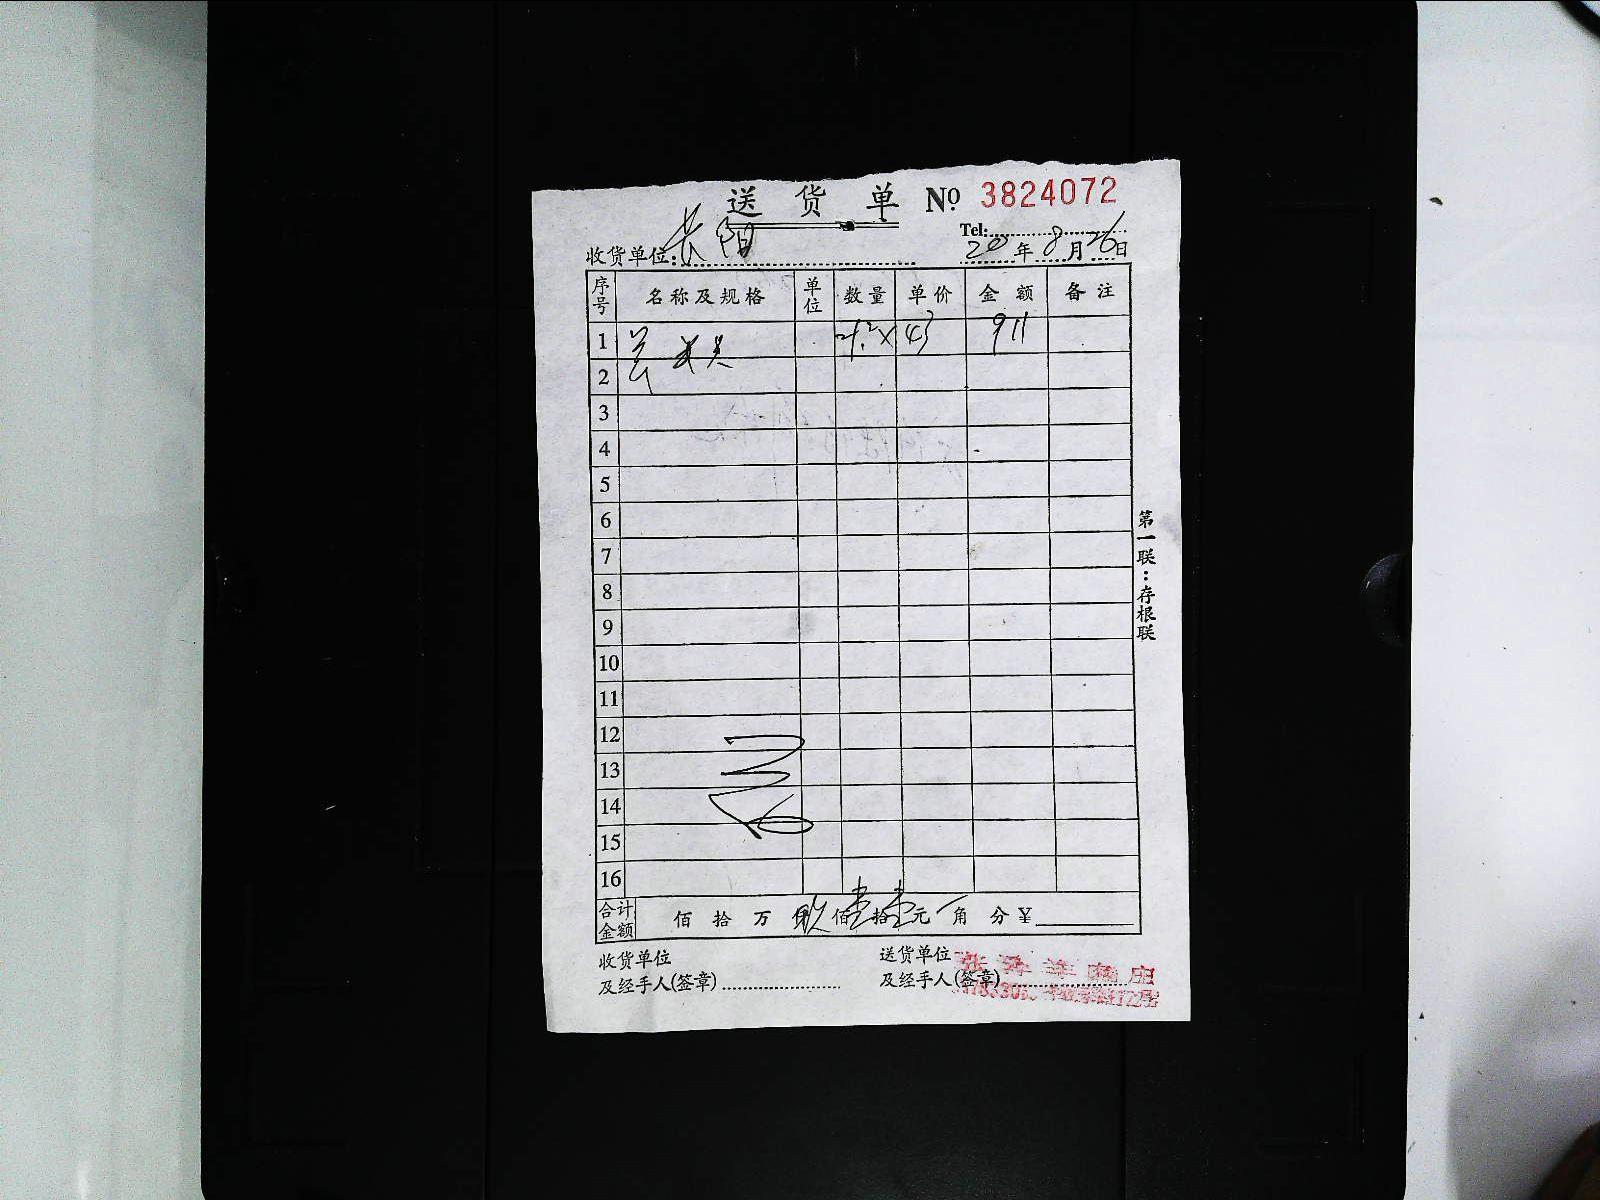 送货单 No 3824072
Tel:
收货单位: 长阳 20年8月26日
序号 名称及规格 单位 数量 单价 金额 备注
1 43 911
2
3
4
5
6
7
8
9
10
11
12
13
14
15
16
合计金额 佰拾万 佰壹拾壹元 角 分 ¥
第一联:存根联
收货单位 送货单位
及经手人(签章) 及经手人(签章)